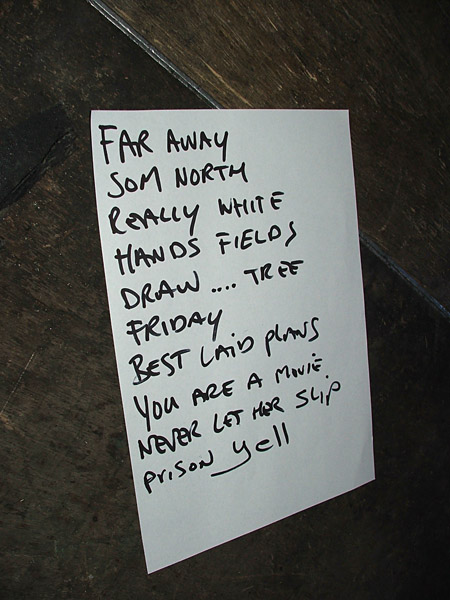 FAR AWAY
SOM NORTH
REALLY WHITE
HANDS FIELDS
DRAW .... TREE
FRIDAY
BEST LAID PLANS
YOU ARE A MOVIE.
NEVER LET HER SLIP
PRISON Yell